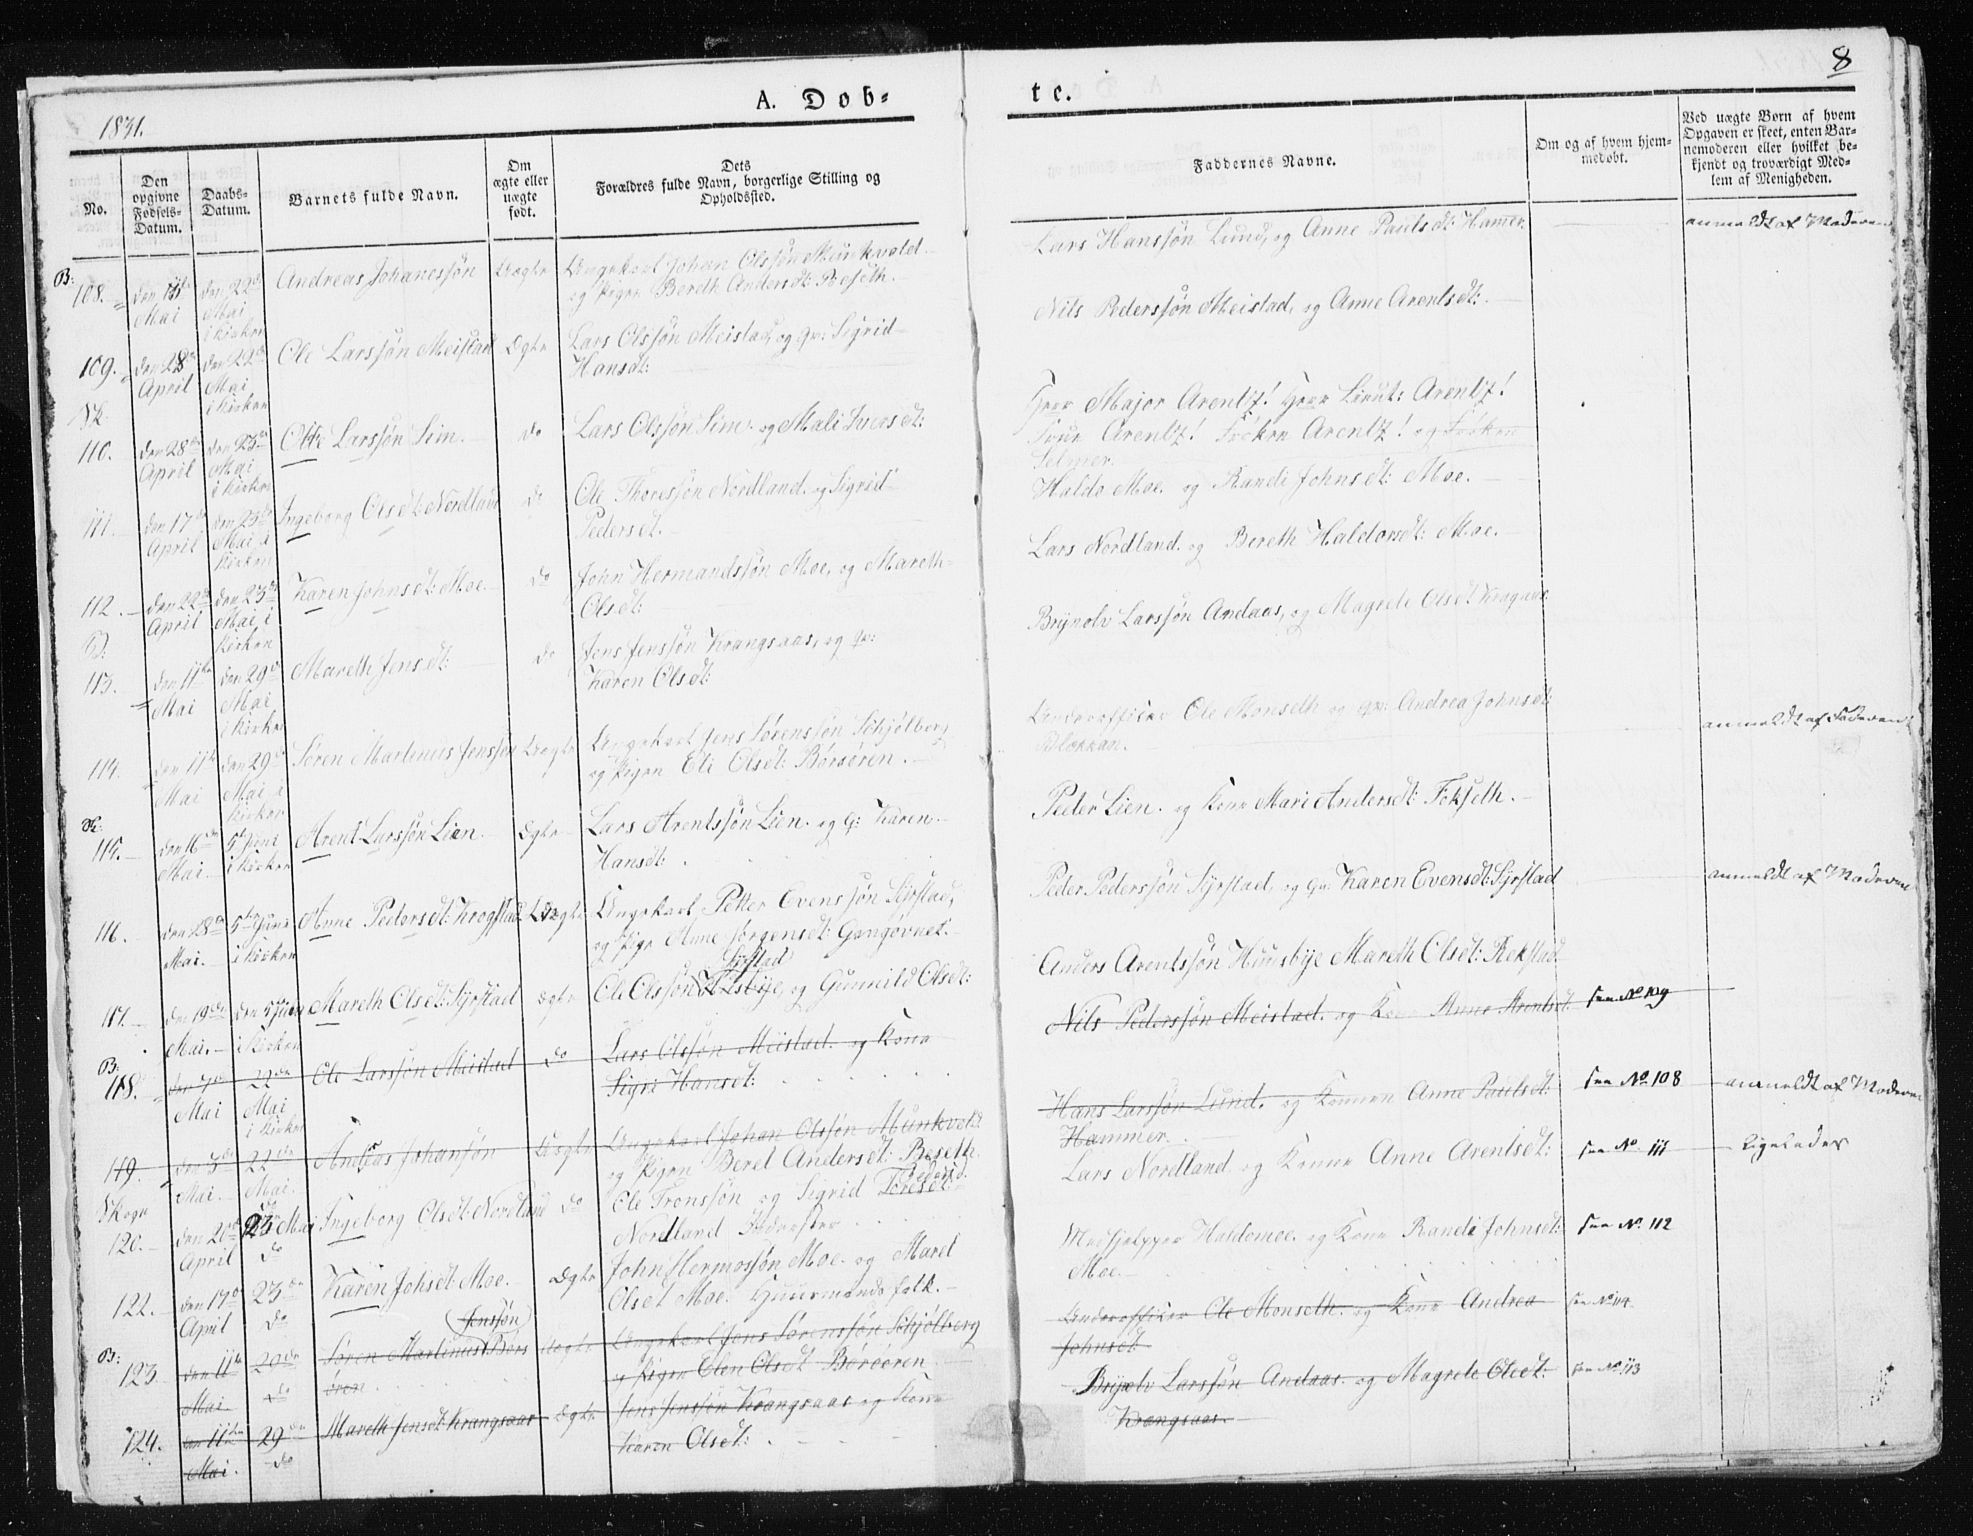 8
1831.
A. Dob=
te.
No.
Den opgivne Fødsels-Datum.
Daabs-Datum.
Barnets fulde Navn.
Om ægte eller uægte født.
Dets Forældres fulde Navn, borgerlige Stilling og Opholdssted.
Faddernes Navne.
Om og af hvem hjem-medøbt.
Ved uægte Børn af hvem Opgaven er skeet, enten Bar-nemoderen eller hvilket be-kjendt og troværdigt Med-lem af Menigheden.
B:
108. den Mai den 22de Mai i Kirken Andreas Johanessøn Uægte Ungekarl Johan Olssøn Munkvold
og Pigen Bereth Andersdt: Beseth.
Lars Hanssøn Lund, og Anne Paulsdt: Hamer. anmeldt af Moderen
109. den 28de April den 22de Mai i Kirken Ole Larssøn Meistad Ægte Lars Olssøn Meistad, og gv: Sigrid
Hansdt:
Nils Pederssøn Meistad, og Anne Arentsdt:
Sk.
110. den 28de April den 23de Mai i Kirken Larssøn Lim. do Lars Olssøn Lim. og Mali Iversdt:
Herr Major Arentz! Herr Lieut: Arentz!
Frue Arentz! Frøken Arentz! og Frøken
Selmer.
111. den 17de April den 23de Mai i Kirken Ingeborg Olsdt: Nordland do Ole Thoressøn Nordland og Sigrid
Pedersdt.
Haldo Moe. og Randi Johnsdt: Moe.
112. den 22de April den 23de Mai i Kirken Karen Johnsdt: Moe. do John Hermandssøn Moe, og Mareth
Olsdt:
Lars Nordland. og Bereth Haldorsdt: Moe.
113. den 11te Mai den 29de Mai i Kirken Mareth Jensdt: do Jens Jenssøn Krangsaas, og gv:
Karen Olsdt:
Brynolv Larssøn Andaas, og Magrete Olsdt
114. den 11te Mai den 29de Mai i Kirken Søren Martinus Jenssøn Uægte Ungekarl Jens Sørenssøn Schjølberg
og Pigen Eli Olsdt: Børsøren.
Underofficier Ole Monseth og gv: Andrea Johnsdt
Blokkan. anmeldt af Faderen
Sk:
115. den 16de Mai 5te Juni i Kirken Arent Larssøn Lien. Ægte Lars Arentssøn Lien. og G: Karen
Hansdt:
Peder Lien. og Kone Mari Andersdt: Fokseth.
116. den 28de Mai. 5te Juni i Kirken Anne Pedersdt: Krogstad Uægte Ungekarl Petter Evenssøn Syrstad,
og Pige Anne Jørgensdt: Gangøvnet.
Peder Pederssøn Syrstad, og Gv: Karen Evensdt: Syrstad anmeldt af Moderen
117. den 19de Mai. den 5 Juni i Kirken Mareth Olsdt: Syrstad Ægte Ole Olssøn Syrstad og Gunnild Olsdt:
Anders Arentssøn Huusbye Mareth Olsdt: Rekstad
B:
118. den 7de Mai 22de Mai i Kirken Ole Larssøn Meistad do Lars Olssøn Meistad. og Kone
Sigri Hansdt:
Nils Pederssøn Meistad. og Kone Anne Arentsdt. see No 109
119. den 3de Mai 22de Mai. Andreas Johansøn Uægte Ungekarl Johan Olssøn Munkvold
og Pigen Beret Andersdt: Beseth.
Hans Larssøn Lund. og Konen Anne Paulsdt:
Hammer. see No 108 anmeldt af Moderen
Skogn
120. den 20de April 23 Mai do Ingeborg Olsdt: Nordland do Ole Tronssøn og Sigrid Toresdt: Pedersd.
Nordland
Lars Nordland og Konne Anne Arentsdt: see No 111 ligeledes
122. den 17de April 23de do Karen Johsdt: Moe. Ægte John Hermossøn Moe. og Maret
Olsdt Moe. Huusmandsfolk.
Medhjelpper Haldomoe. og Kone Randi Johnsdt:
Moe. see No. 112
B:
123. den 11te Mai. 29de do Søren Martinus Jenssøn Børs
øren Uægte Ungekarl Jens Sørenssøn Schjølberg
og Pigen Elen Olsdt Børsøren
Underofficier Ole Monseth. og Kone Andrea
Johnsdt. see No 114
124. den 11te Mai. 29de do Mareth Jensdt: Krangsaas Ægte Jens Jenssøn Krangsaas og Kone
Karen Olsdt:
Brynolv Larssøn Andaas. og Magrete Olsdt:
Krangsaas. see No 113